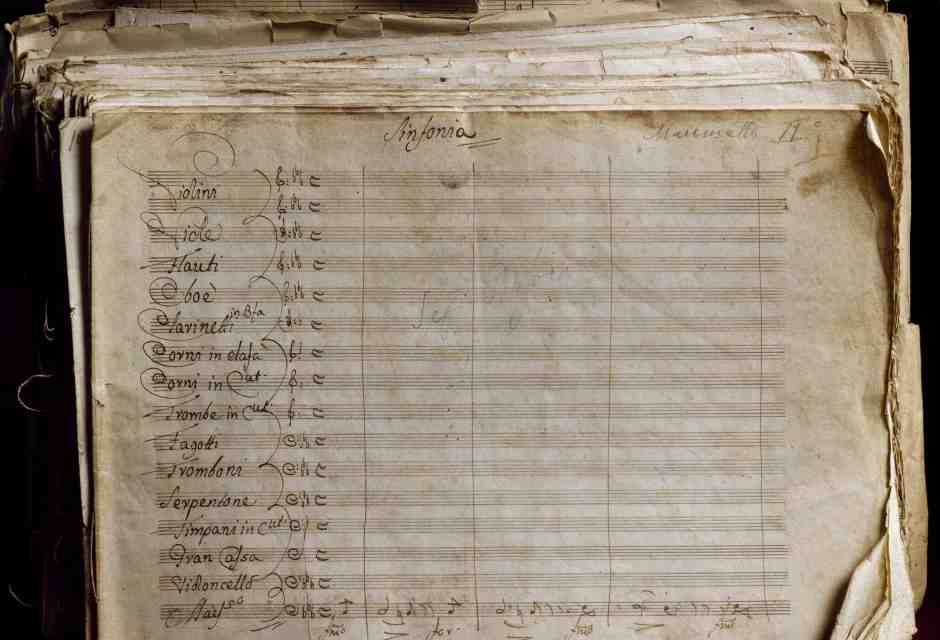 Sinfonia
Violini
Viole
Flauti
Oboè
Clarinetti in Bfa
Corni in elafa
Corni in Cut
Trombe in Cut
Fagotti
Tromboni
Serpentone
Timpani in Cut
Gran Cassa
Violoncello
for.